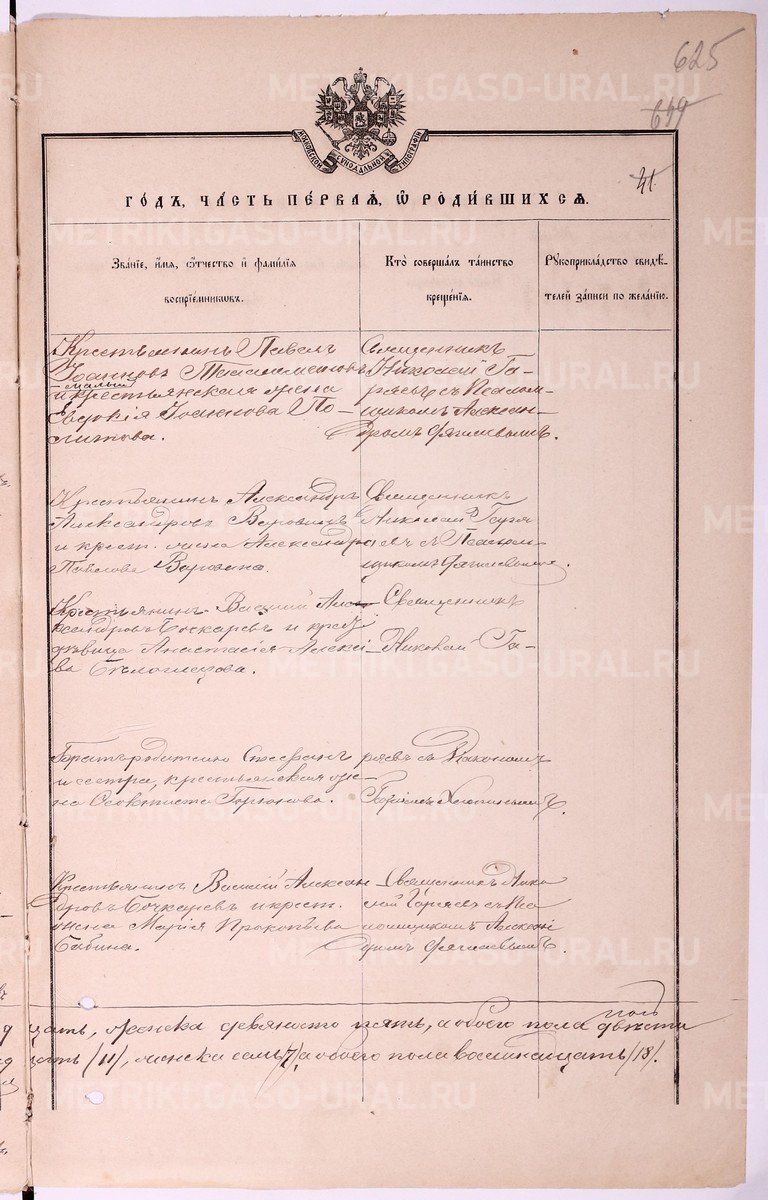 625
619
41
МОСКОВСКОЙ СѴНОДАЛЬНОЙ ТИПОГРАФІИ
ГОДЪ, ЧАСТЬ ПЕРВАЯ, Ѡ РОДИВШИХСЯ.
Званіе, имя, отчество и фамилія
воспріемниковъ.
Кто совершалъ таинство
крещенія.
Рукоприкладство свидѣ-
телей записи по желанію.
Крестьянинъ Павелъ
Іоанновъ
и крестьянская жена
Евдокія Іоаннова По-
литова.
Священникъ
Николай Га-
ряевъ съ Псалом-
щикомъ Алексан-
дромъ
Крестьянинъ Александръ
Александровъ
и крест. жена Александра
Павлова
Священникъ
Николай Гаря-
евъ съ Псалом-
щикомъ
Крестьянинъ Василій Але-
ксандровъ Бочкаревъ и крест.
дѣвица Анастасія Алексѣ-
ва Бѣлоглазова.
Священникъ
Николай Га-
Братъ родителю Стефанъ
и сестра, крестьянская же-
на Ѳеоктиста Горюнова.
ряевъ съ Діакономъ
Крестьянинъ Василій Алексан
дровъ Бочкаревъ и крест.
жена Марія Прокопьева
Бабина.
Священникъ Нико
лай Гаряевъ съ Пса
ломщикомъ Алексан
дромъ
цать, женска девяносто пять, а обоего пола двѣсти
цать /11/, женска семь /7/, а обоего пола восемнадцать /18/.
METRIKI.GASO-URAL.RU